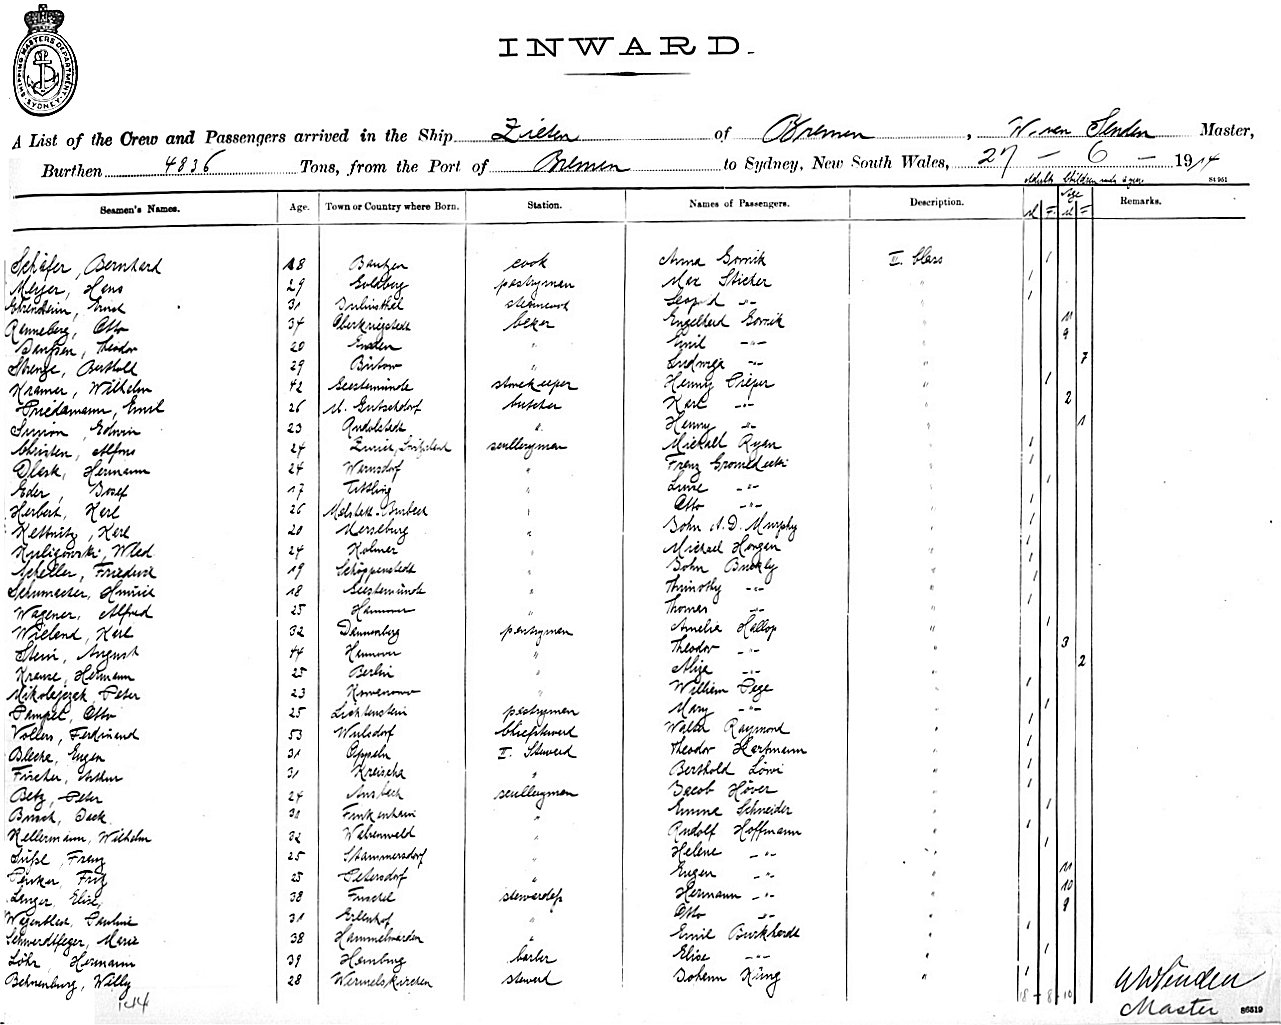 SHIPPING MASTERS DEPARTMENT SYDNEY
INWARD.
A List of the Crew and Passengers arrived in the Ship Zieten of Bremen, W. von Senden Master,
Burthen 4836 Tons, from the Port of Bremen to Sydney, New South Wales, 27 - 6 - 1914
Adults Children
84951
Seamen's Names. Age. Town or Country where Born. Station. Names of Passengers. Description. M F Age M F Remarks.
Schäfer, Bernhard 18 Bautzen cook Anna Gornik II. Class 1
Meyer, Hans 29 Goldberg pastryman Max Sticher " 1
Ehrenstein, Ernst 31 steamcook Leopold -"- " 1
Renneberg, Otto 34 beker Engelhard Gornik " 11
Janssen, Theodor 20 Emden " Emil -"- " 9
Strenge, Berthold 29 Bütow " Ludwiga -"- " 7
Kramer, Wilhelm 42 Geestemünde storekeeper Henny Pieper " 1
Friedemann, Ernst 26 butcher Karl -"- " 2
Simon, Edwin 23 Rudolstadt " Henny -"- " 1
Christen, Alfons 24 sculleryman Michael Ryan " 1
Hermann 24 Warnsdorf " Franz " 1
Eder, Josef 17 Tittling " Luise -"- " 1
Herbert, Karl 26 " Otto -"- " 1
Kettnitz, Karl 20 Merseburg " John A.D. Murphy " 1
24 Kolmar " Michael Horgan " 1
Scheller, Friedrich 19 Schöppenstedt " John Buckley " 1
Schumacher, Hinrich 18 Geestemünde " Thimothy -"- " 1
Wagener, Alfred 25 Hannover " Thomas -"- " 1
Wieland, Karl 32 Dannenberg pantryman Amelia Hallop " 1
Stein, August 44 Hannover " Theodor -"- " 3
Krause, Hermann 25 Berlin " Alice -"- " 2
Mikolajczak, Peter 23 " William Page " 1
Pampel, Otto 25 Lichtenstein pastryman Mary -"- " 1
Vollers, Ferdinand 53 Wulsdorf Chiefsteward Walter Raymond " 1
Blecha, Eugen 31 Oppeln II. Steward Theodor Hartmann " 1
Fischer, Arthur 31 Kreischa " Berthold Löwi " 1
Betz, Peter 24 Ansbach sculleryman Jacob Höver " 1
Busch, Jack 31 Finkenhain " Emma Schneider " 1
Kellermann, Wilhelm 22 " Rudolf Hoffmann " 1
Süssl, Franz 25 Stammersdorf " Helene -"- " 1
Fritz 25 Petersdorf " Eugen -"- " 11
Langer, Elise 38 stewardess Hermann -"- " 10
Pauline 31 Erlenhof " Otto -"- " 9
Schwerdtfeger, Marie 38 Hammelwarden " Emil Burkhardt " 1
Löhr, Hermann 39 Hamburg barber Elise -"- " 1
Behnenburg, Willy 28 Wermelskirchen steward Johann Küng " 1
18 - 8 - 10
W v Senden
Master
86519